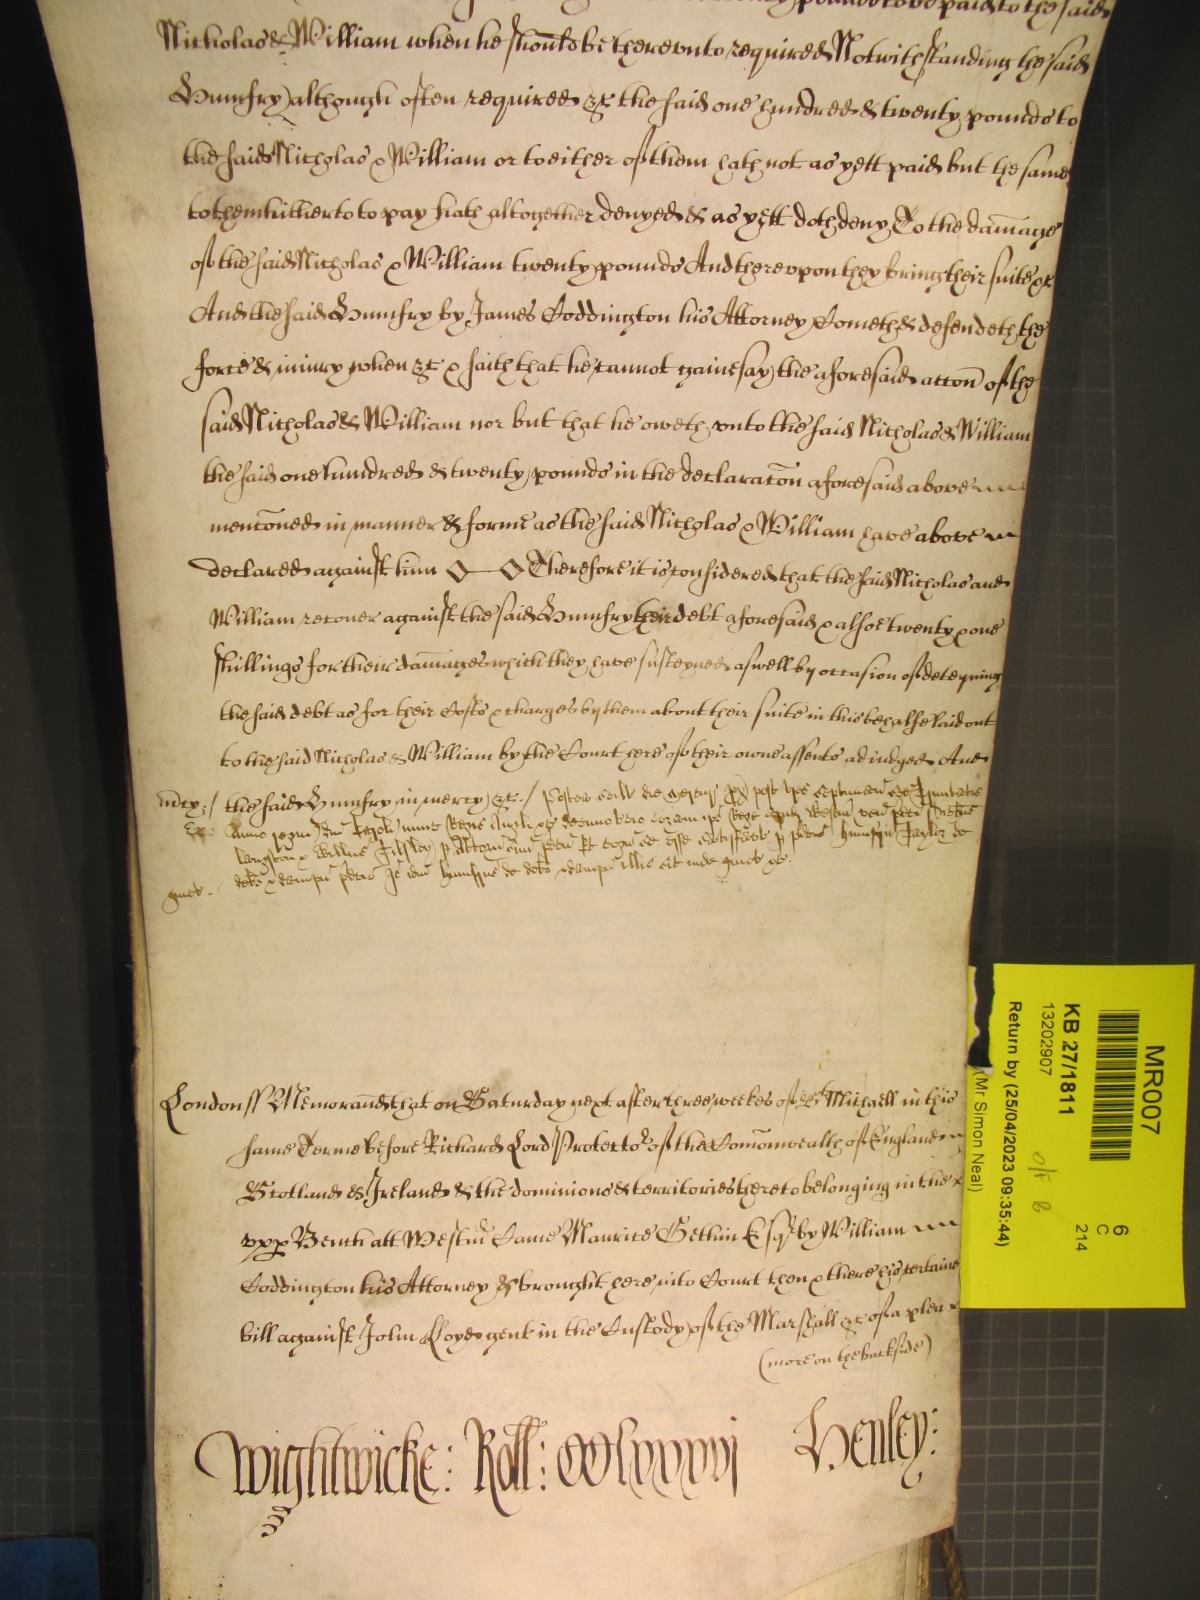 pounds to be paid to the said
Nicholas & William when he should be thereunto required Notwithstanding the said
Humfry although often required &c the said one hundred & twenty pounds to
the said Nicholas & William or to either of them hath not as yett paid but the same
to them hitherto to pay hath altogether denyed & as yett doth deny To the damage
of the said Nicholas & William twenty pounds And thereupon they bring their suite &c
And the said Humfry by James Coddington his Attorney Cometh & defendeth the
force & iniury when &c & saith that he cannot gainesay the aforesaid accon of the
said Nicholas & William nor but that he oweth unto the said Nicholas & William
the said one hundred & twenty pounds in the declaracon aforesaid above
menconed in manner & forme as the said Nicholas & William have above
declared against him Therefore it is considered that the said Nicholas and
William recover against the said Humfry their debt aforesaid & alsoe twenty & one
shillings for their damages which they have susteyned aswell by occasion of deteyning
the said debt as for their Costs & charges by them about their suite in this behalfe laid out
to the said Nicholas & William by the Court here of their owne assente adiudged And
mcy / the said Humfry in mercy &c / Postea scilt die
Anno regni Dni Caroli nunc Regis Angl &c decimo coram
Langston & Willus p Attorn suu Humfrm
debo & dampn Humfrus de debo & dampn illis sit inde quiet &c
London ss Memorand that on Saturday next after three weekes of St Michaell in this
same Terme before Richard Lord Protector of the Comonwealth of England
Scotland & Ireland & the dominions & territories thereto belonging in the
upp Bench att Westmr Came Maurice Gethin Esqr by William
Coddington his Attorney & brought here into Court then & there his certaine
bill against John Loyd gent in the Custody of the Marshall &c of a plea
(more on the backside)
Wightwicke: Roll: CClxxxvj Henley:
MR007
KB 27/1811
13202907
Return by (25/04/2023 09:35:44)
(Mr Simon Neal)
6
C
214